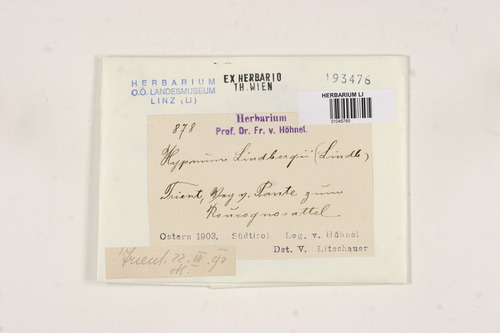 HERBARIUM
O.Ö. LANDESMUSEUM
LINZ (LI)
EX HERBARIO
TH. WIEN
193476
HERBARIUM LI
878
Herbarium
Prof. Dr. Fr. v. Höhnel.
Hypnum Lindbergii (Lindb)
Trient, Weg v. Ponte zum
Roncognosattel.
Ostern 1903. Südtirol. Leg. v. Höhnel
Det. V. Litschauer
Trient. 22. III. 93